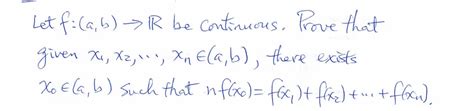 Let f:(a,b) → ℝ be continuous. Prove that
given x₁, x₂, ⋯, xₙ ∈(a,b), there exists
x₀ ∈(a,b) such that n f(x₀) = f(x₁) + f(x₂) + ⋯ + f(xₙ).